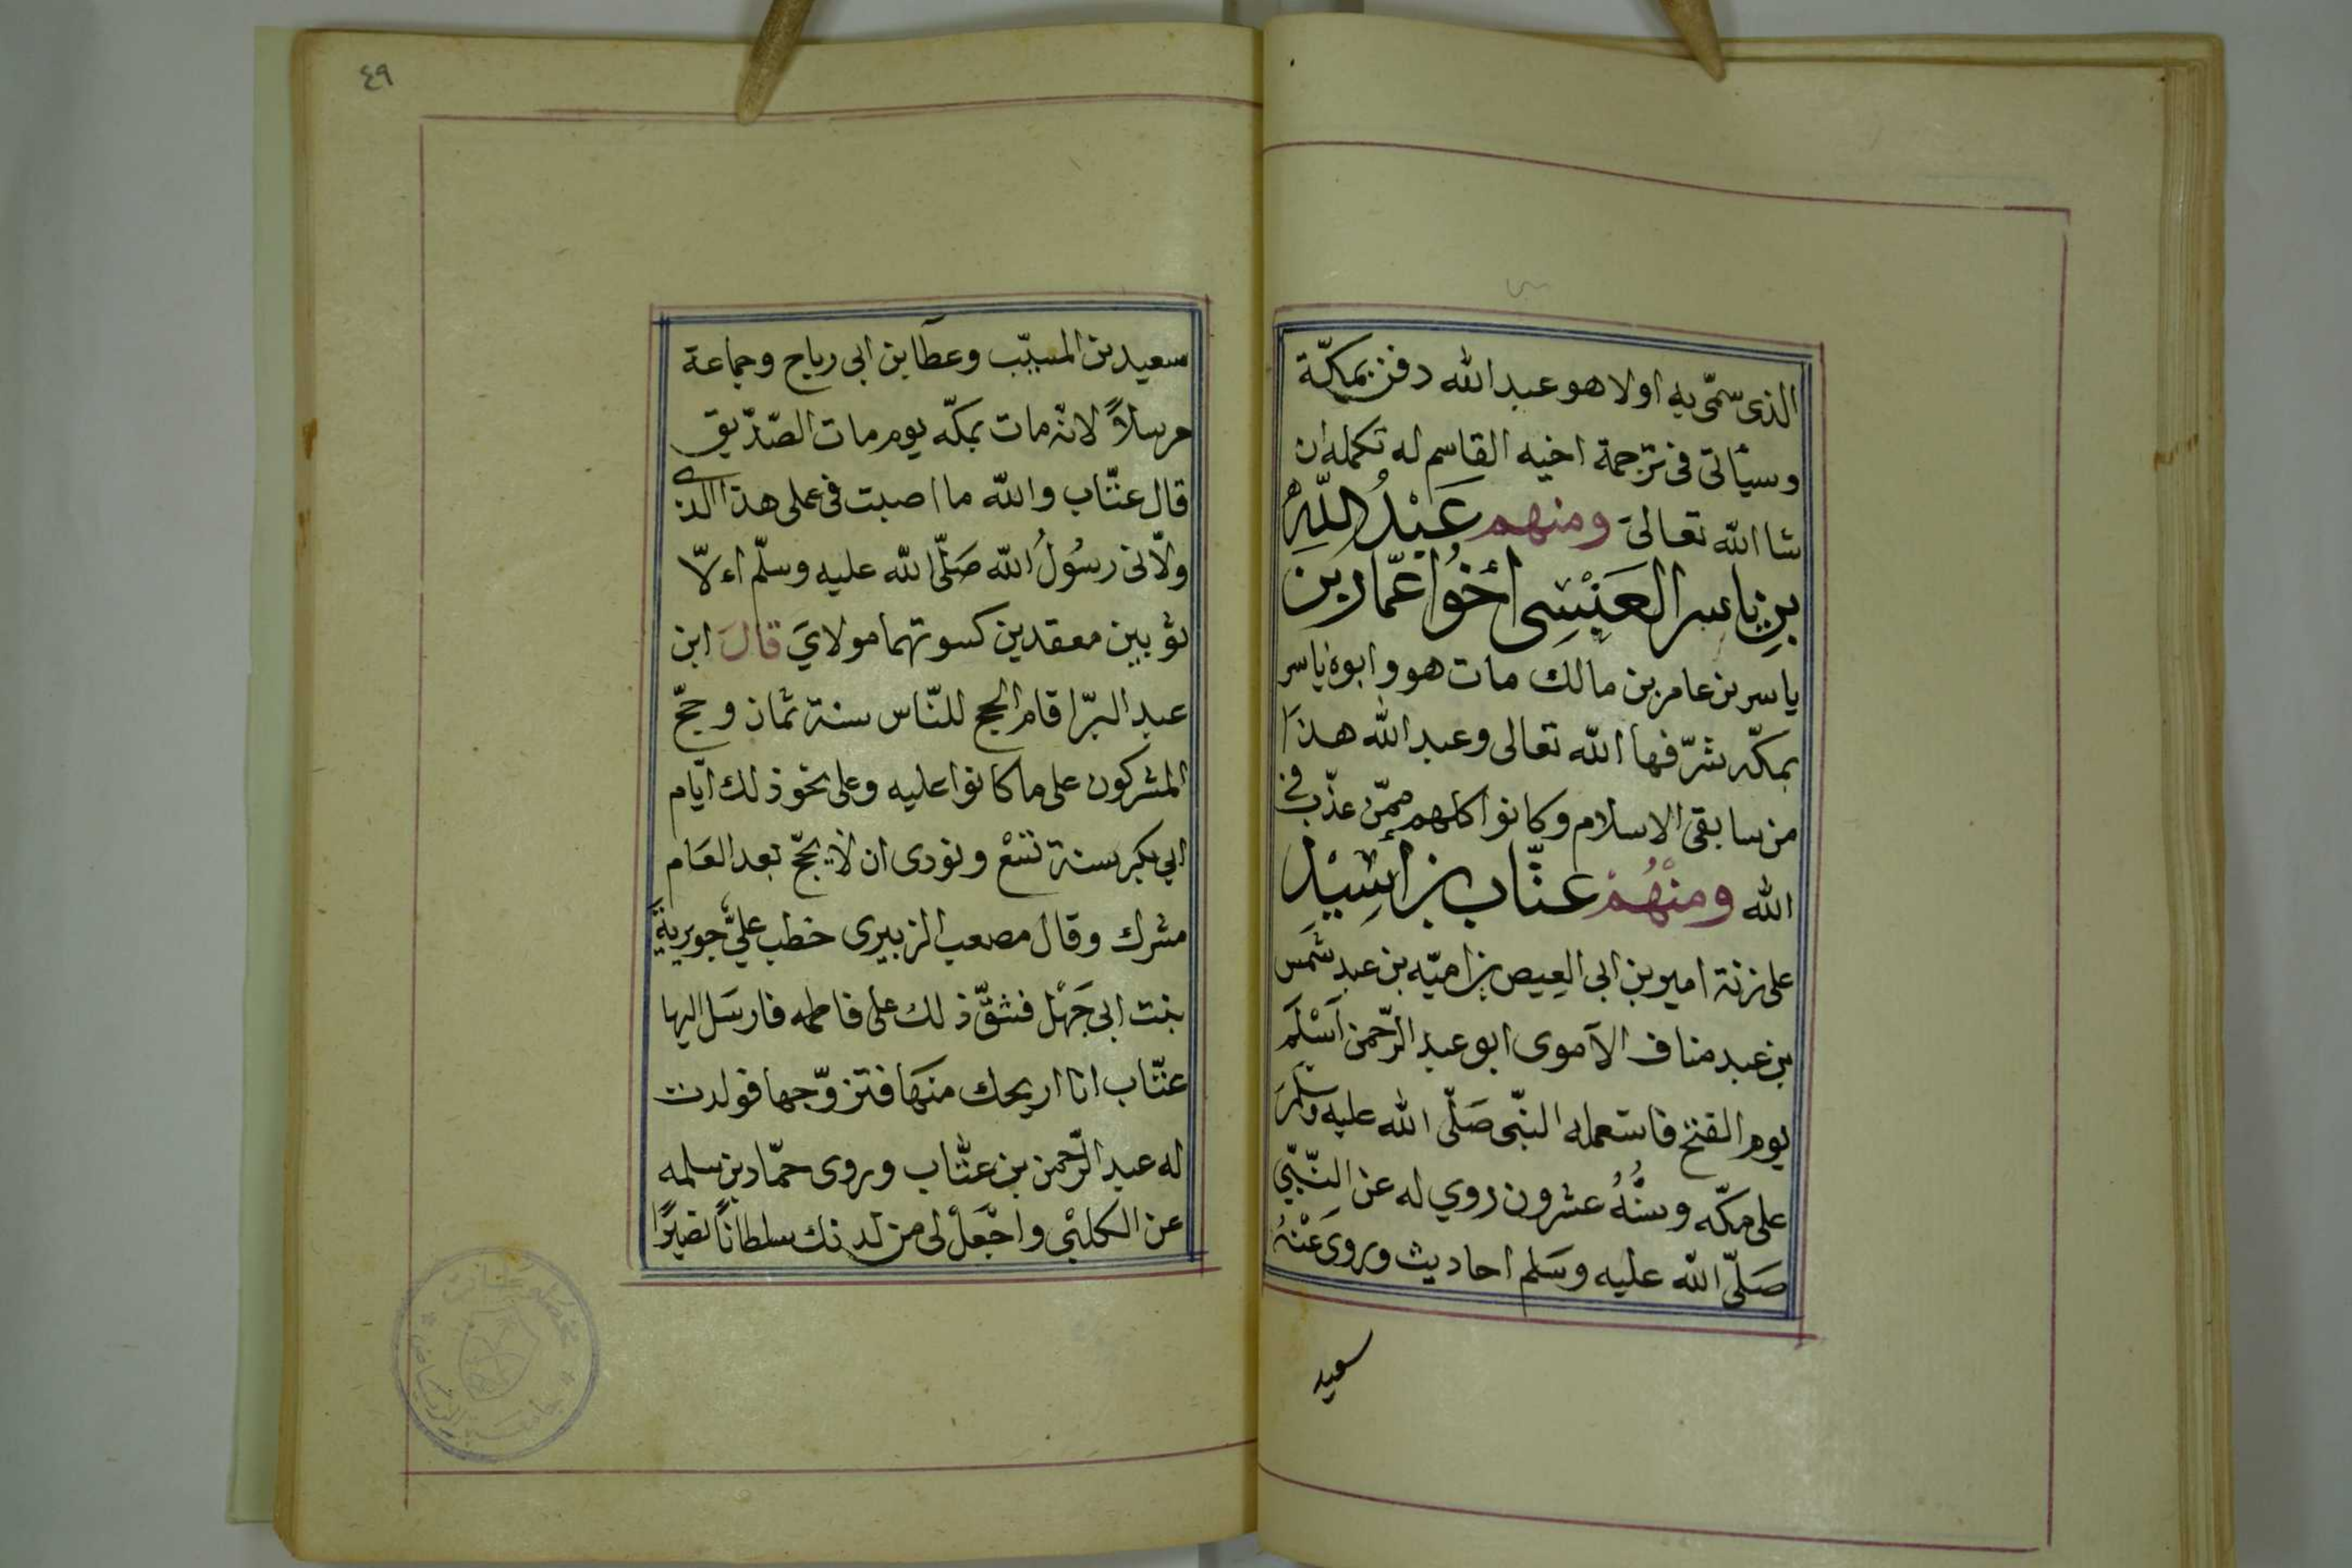 الذى سمّى به اولا هو عبد الله دفن بمكّة
وسيأتى فى ترجمة اخيه القاسم له تكمله ان
شا الله تعالىَ ومنهم عَبْدُ اللّهِ
بنِ ياسر العَنْسِى أخُوا عمّار بن
ياسر بن عامر بن مالك مات هو وابوه ياسر
بمكّه شرّفها الله تعالى وعبد الله هذا
من سابقى الاسلام وكانوا كلهم ممّن عذّب فى
الله ومنْهُمْ عتّاب بن أَسِيْد
على زنة امير بن ابى العيص بن اميّه بن عبد شَمس
بن عبد مناف الآموى ابو عبد الرّحمن اَسْلَم
يوم الفتح فاستعمله النبّى صَلّى الله عليه وسَلّمَ
على مكّه وسنُّهُ عشرون روي له عن النبّيّ
صَلّى الله عليه وسَلم احاديث وروى عَنْهُ
سعيد
٤٩
سعيد بن المسيّب وعطآ بن ابى رباح وجماعة
مرسلاً لانّه مات بمكّه يوم مات الصّدّيق
قال عتّاب والله ما اصبت فى عملى هذا الذى
ولّانى رسُولُ الله صَلّى الله عليه وسلّم الّا
ثوبين معقدين كسوتهما مولايَ قالَ ابن
عبد البرّ اقام الحج للنّاس سنة ثمان وحجّ
المشركون على ما كانوا عليه وعلى نحو ذلك ايّام
ابي بكر سنة تسْع ونودى ان لا يحجّ بعد العَام
مشرك وقال مصعب الزبيرى خطب عليٌّ جويرية
بنت ابى جَهْل فشقّ ذلك على فاطمه فارسَل اليها
عتّاب انا اريحك منهَا فتزوّجها فولدت
له عبد الرّحمن بن عتّاب وروى حمّاد بن سلمه
عن الكلبْي واجْعَلْ لى من لدنك سلطانًا نصيرًا
مخطوطات
جامعة الرياض